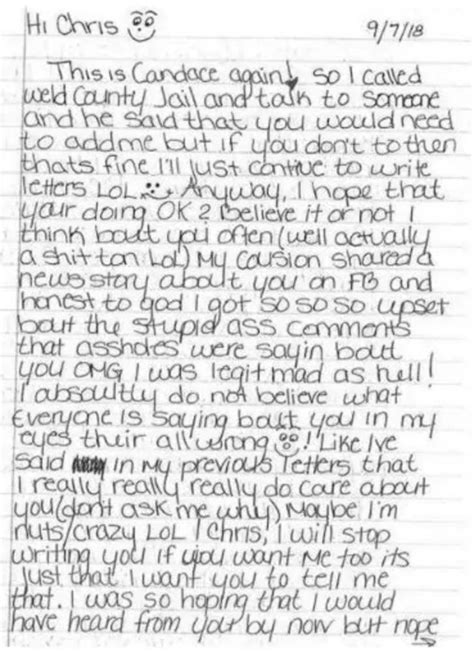 Hi Chris
9/7/18
This is Candace again! So I called
weld County Jail and talk to someone
and he said that you would need
to add me but if you don't to then
thats fine I'll just contiue to write
letters LOL Anyway, I hope that
your doing OK? Believe it or not I
think bout you often (well actually
a shit ton LoL) My Cousion shared a
news story about you on FB and
honest to god I got so so so upset
bout the stupid ass comments
that assholes were sayin bout
you OMG I was legit mad as hell!
I absoultly do not believe what
Everyone is saying bout you in my
eyes their all wrong ! Like Ive
said in my previous letters that
I really really really do care about
you (dont ask me why) Maybe I'm
nuts/crazy LOL ! Chris, I will stop
writing you if you want me too its
just that I want you to tell me
that. I was so hoping that I would
have heard from you by now but nope